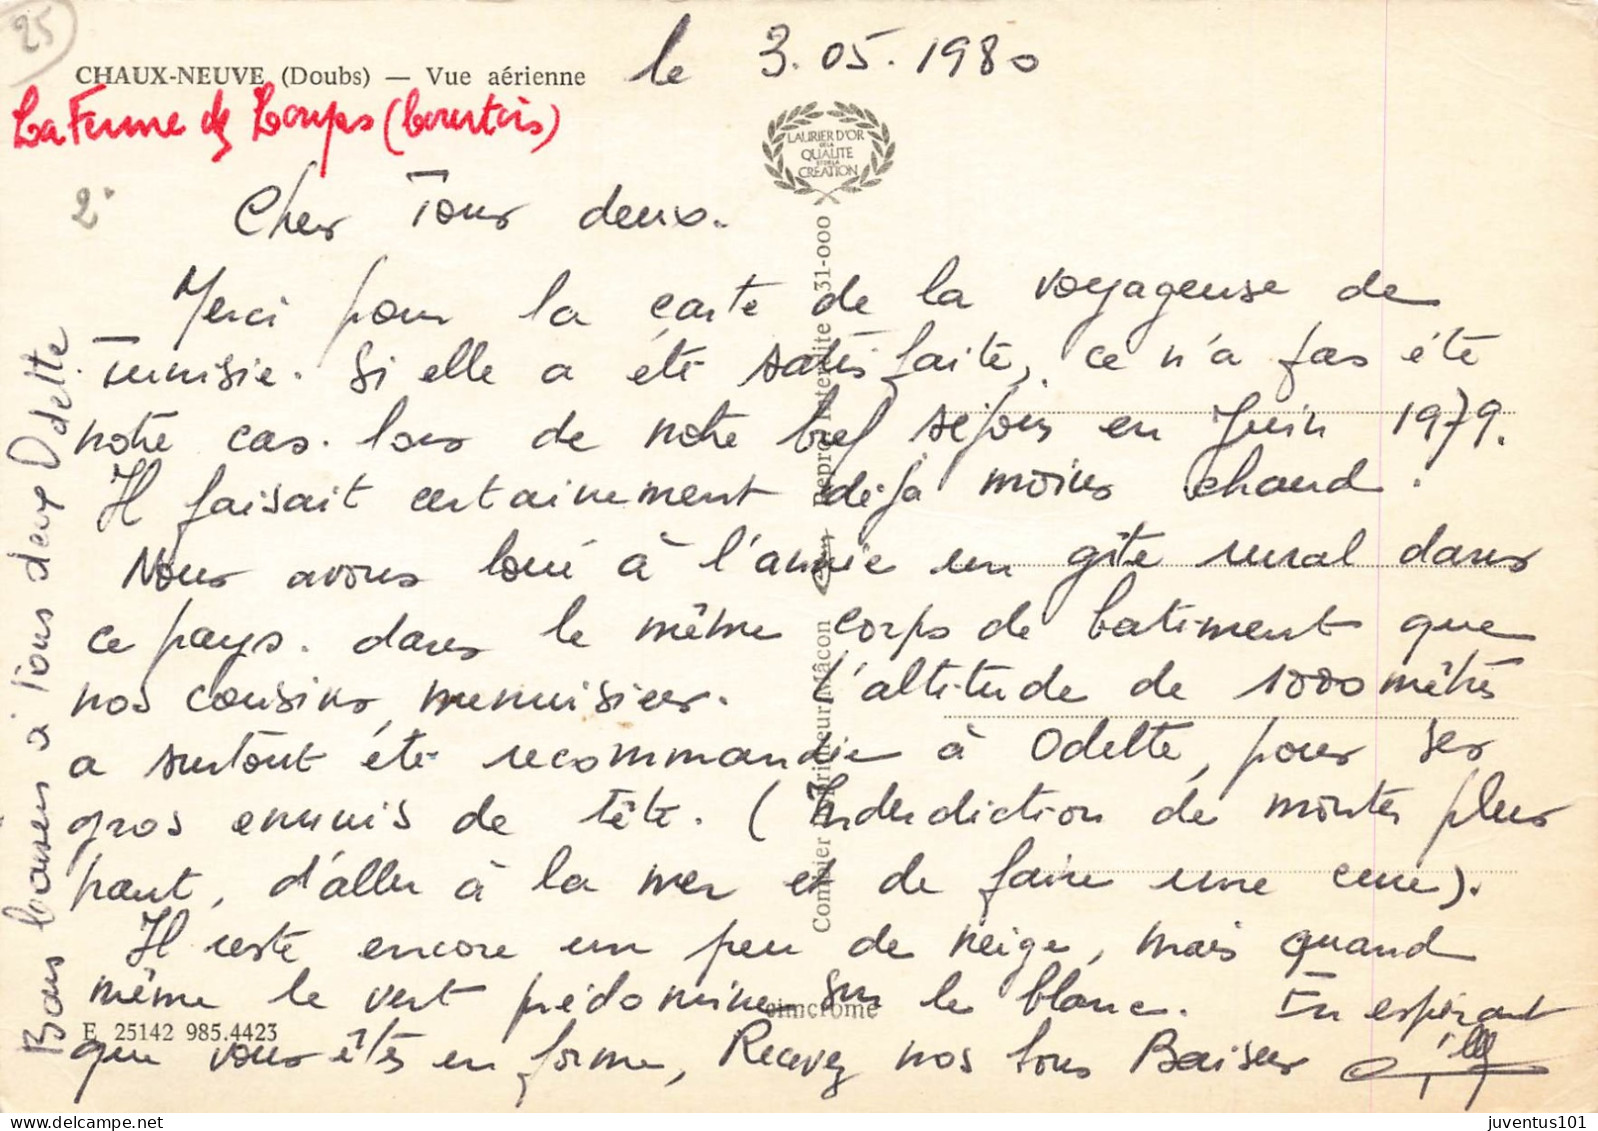 25
CHAUX-NEUVE (Doubs) — Vue aérienne
le 3.05.1980
La Ferme des Loups (Courtois)
LAURIER D'OR
DE LA
QUALITE
ET DE LA
CREATION
2.
Cher Tous deux.
Merci pour la carte de la voyageuse de
Tunisie. Si elle a été satisfaite, ce n'a pas été
notre cas. lors de notre bref séjour en Juin 1979.
Il faisait certainement déjà moins chaud !
Nous avons loué à l'année un gîte rural dans
ce pays. dans le même corps de batiment que
nos cousins, menuisier. L'altitude de 1000 mètres
a surtout été recommandée à Odette, pour ses
gros ennuis de tête. (Interdiction de monter plus
haut, d'aller à la mer et de faire une cure).
Il reste encore un peu de neige, mais quand
même le vert prédomine sur le blanc. En espérant
que vous êtes en forme, Recevez nos bons Baisers
Bons baisers à Tous deux Odette
Combier Imprimeur Mâcon
Reproduction Interdite 31-000
cimcrome
E 25142 985.4423
juventus101